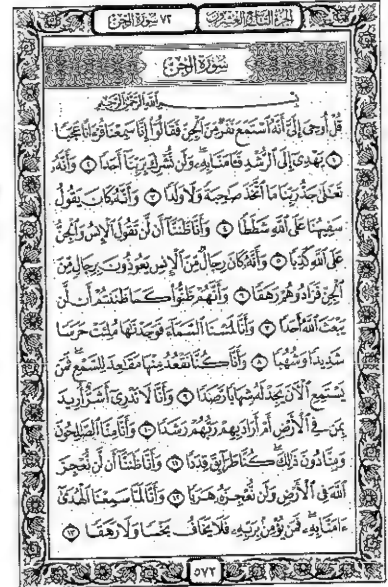 الجزء التاسع والعشرون
٧٢ سورة الجن
سُورَةُ الجِنِّ
بِسْمِ اللَّهِ الرَّحْمَٰنِ الرَّحِيمِ
قُلْ أُوحِيَ إِلَيَّ أَنَّهُ ٱسْتَمَعَ نَفَرٌ مِّنَ ٱلْجِنِّ فَقَالُوٓا۟ إِنَّا سَمِعْنَا قُرْءَانًا عَجَبًا
١ يَهْدِىٓ إِلَى ٱلرُّشْدِ فَـَٔامَنَّا بِهِۦ وَلَن نُّشْرِكَ بِرَبِّنَآ أَحَدًا ٢ وَأَنَّهُۥ
تَعَٰلَىٰ جَدُّ رَبِّنَا مَا ٱتَّخَذَ صَٰحِبَةً وَلَا وَلَدًا ٣ وَأَنَّهُۥ كَانَ يَقُولُ
سَفِيهُنَا عَلَى ٱللَّهِ شَطَطًا ٤ وَأَنَّا ظَنَنَّآ أَن لَّن تَقُولَ ٱلْإِنسُ وَٱلْجِنُّ
عَلَى ٱللَّهِ كَذِبًا ٥ وَأَنَّهُۥ كَانَ رِجَالٌ مِّنَ ٱلْإِنسِ يَعُوذُونَ بِرِجَالٍ مِّنَ
ٱلْجِنِّ فَزَادُوهُمْ رَهَقًا ٦ وَأَنَّهُمْ ظَنُّوا۟ كَمَا ظَنَنتُمْ أَن لَّن
يَبْعَثَ ٱللَّهُ أَحَدًا ٧ وَأَنَّا لَمَسْنَا ٱلسَّمَآءَ فَوَجَدْنَٰهَا مُلِئَتْ حَرَسًا
شَدِيدًا وَشُهُبًا ٨ وَأَنَّا كُنَّا نَقْعُدُ مِنْهَا مَقَٰعِدَ لِلسَّمْعِ فَمَن
يَسْتَمِعِ ٱلْـَٔانَ يَجِدْ لَهُۥ شِهَابًا رَّصَدًا ٩ وَأَنَّا لَا نَدْرِىٓ أَشَرٌّ أُرِيدَ
بِمَن فِى ٱلْأَرْضِ أَمْ أَرَادَ بِهِمْ رَبُّهُمْ رَشَدًا ١٠ وَأَنَّا مِنَّا ٱلصَّٰلِحُونَ
وَمِنَّا دُونَ ذَٰلِكَ كُنَّا طَرَآئِقَ قِدَدًا ١١ وَأَنَّا ظَنَنَّآ أَن لَّن نُّعْجِزَ
ٱللَّهَ فِى ٱلْأَرْضِ وَلَن نُّعْجِزَهُۥ هَرَبًا ١٢ وَأَنَّا لَمَّا سَمِعْنَا ٱلْهُدَىٰٓ
ءَامَنَّا بِهِۦ فَمَن يُؤْمِنۢ بِرَبِّهِۦ فَلَا يَخَافُ بَخْسًا وَلَا رَهَقًا ١٣
٥٧٢